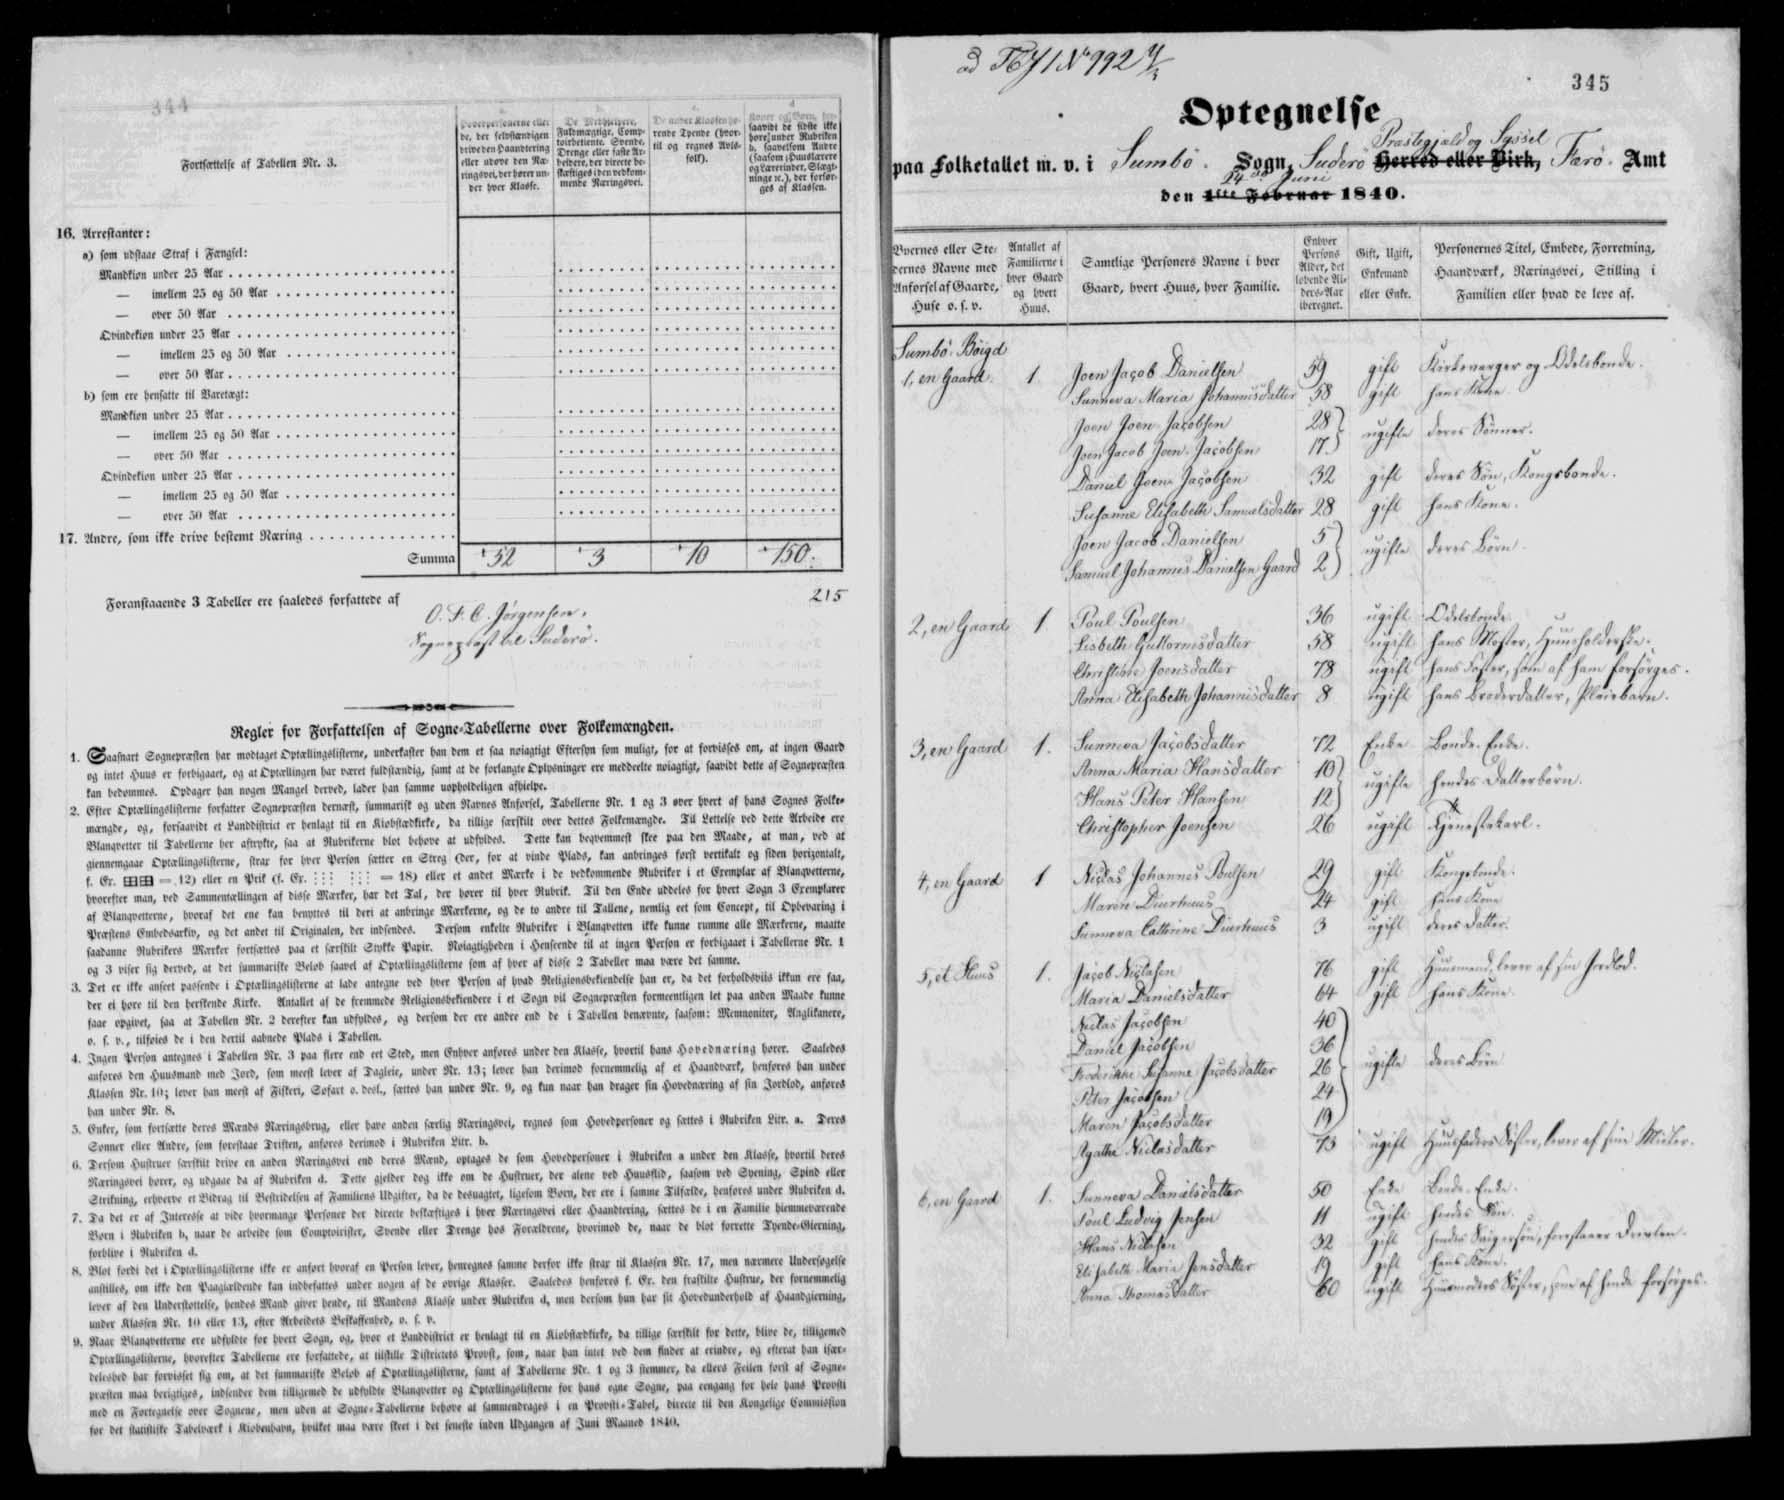 344
Fortsættelse af Tabellen Nr. 3.
a
Hovedpersonerne eller de, der selvstændigen drive den Haandtering eller udøve den Næringsvei, der hører under hver Klasse.
b.
De Medhjelpere, Fuldmægtige, Comptoirbetiente, Svende, Drenge eller faste Arbeidere, der directe beskæftiges i den vedkommende Næringsvei.
c.
De under Klassen hørende Tyende (hvortil og regnes Avlsfolk).
d
Koner og Børn, forsaavidt de sidste ikke høre under Rubriken b, saavelsom Andre (saasom Huuslærere og Lærerinder, Slægtninge ꝛc.), der forsørges af Klassen.
16. Arrestanter:
a) som udstaae Straf i Fængsel:
Mandkiøn under 25 Aar
— imellem 25 og 50 Aar
— over 50 Aar
Qvindekiøn under 25 Aar
— imellem 25 og 50 Aar
— over 50 Aar
b) som ere hensatte til Varetægt:
Mandkiøn under 25 Aar
— imellem 25 og 50 Aar
— over 50 Aar
Qvindekiøn under 25 Aar
— imellem 25 og 50 Aar
— over 50 Aar
17. Andre, som ikke drive bestemt Næring
Summa 52 3 10 150.
215
Foranstaaende 3 Tabeller ere saaledes forfattede af
O. F. C. Jørgensen,
Sognepræst til Suderø.
Regler for Forfattelsen af Sogne-Tabellerne over Folkemængden.
1. Saasnart Sognepræsten har modtaget Optællingslisterne, underkaster han dem et saa nøiagtigt Eftersyn som muligt, for at forvisses om, at ingen Gaard
og intet Huus er forbigaaet, og at Optællingen har været fuldstændig, samt at de forlangte Oplysninger ere meddeelte nøiagtigt, saavidt dette af Sognepræsten
kan bedømmes. Opdager han nogen Mangel derved, lader han samme uopholdeligen afhielpe.
2. Efter Optællingslisterne forfatter Sognepræsten dernæst, summarisk og uden Navnes Anførsel, Tabellerne Nr. 1 og 3 over hvert af hans Sognes Folke-
mængde, og, forsaavidt et Landdistrict er henlagt til en Kiøbstædkirke, da tillige særskilt over dettes Folkemængde. Til Lettelse ved dette Arbeide ere
Blanqvetter til Tabellerne her aftrykte, saa at Rubrikerne blot behøve at udfyldes. Dette kan beqvemmest skee paa den Maade, at man, ved at
giennemgaae Optællingslisterne, strax for hver Person sætter en Streg (der, for at vinde Plads, kan anbringes først vertikalt og siden horizontalt,
f. Ex. ⊞⊞ = 12) eller en Prik (f. Ex. ⋮⋮⋮ ⋮⋮⋮ = 18) eller et andet Mærke i de vedkommende Rubriker i et Exemplar af Blanqvetterne,
hvorefter man, ved Sammentællingen af disse Mærker, har det Tal, der hører til hver Rubrik. Til den Ende uddeles for hvert Sogn 3 Exemplarer
af Blanqvetterne, hvoraf det ene kan benyttes til deri at anbringe Mærkerne, og de to andre til Tallene, nemlig eet som Concept, til Opbevaring i
Præstens Embedsarkiv, og det andet til Originalen, der indsendes. Dersom enkelte Rubriker i Blanqvetten ikke kunne rumme alle Mærkerne, maatte
saadanne Rubrikers Mærker fortsættes paa et særskilt Stykke Papir. Nøiagtigheden i Henseende til at ingen Person er forbigaaet i Tabellerne Nr. 1
og 3 viser sig derved, at det summariske Beløb saavel af Optællingslisterne som af hver af disse 2 Tabeller maa være det samme.
3. Det er ikke anseet passende i Optællingslisterne at lade antegne ved hver Person af hvad Religionsbekiendelse han er, da det forholdsviis ikkun ere faa,
der ei høre til den herskende Kirke. Antallet af de fremmede Religionsbekiendere i et Sogn vil Sognepræsten formeentligen let paa anden Maade kunne
faae opgivet, saa at Tabellen Nr. 2 derefter kan udfyldes, og dersom der ere andre end de i Tabellen benævnte, saasom: Memnoniter, Anglikanere,
o. s. v., tilføies de i den dertil aabnede Plads i Tabellen.
4. Ingen Person antegnes i Tabellen Nr. 3 paa flere end eet Sted, men Enhver anføres under den Klasse, hvortil hans Hovednæring hører. Saaledes
anføres den Huusmand med Jord, som meest lever af Dagleie, under Nr. 13; lever han derimod fornemmelig af et Haandværk, henføres han under
Klassen Nr. 10; lever han meest af Fiskeri, Søfart o. desl., sættes han under Nr. 9, og kun naar han drager sin Hovednæring af sin Jordlod, anføres
han under Nr. 8.
5. Enker, som fortsætte deres Mænds Næringsbrug, eller have anden særlig Næringsvei, regnes som Hovedpersoner og sættes i Rubriken Litr. a. Deres
Sønner eller Andre, som forestaae Driften, anføres derimod i Rubriken Litr. b.
6. Dersom Hustruer særskilt drive en anden Næringsvei end deres Mænd, optages de som Hovedpersoner i Rubriken a under den Klasse, hvortil deres
Næringsvei hører, og udgaae da af Rubriken d. Dette gjelder dog ikke om de Hustruer, der alene ved Huusflid, saasom ved Syening, Spind eller
Strikning, erhverve et Bidrag til Bestridelsen af Familiens Udgifter, da de desuagtet, ligesom Børn, der ere i samme Tilfælde, henføres under Rubriken d.
7. Da det er af Interesse at vide hvormange Personer der directe beskæftiges i hver Næringsvei eller Haandtering, sættes de i en Familie hiemmeværende
Børn i Rubriken b, naar de arbeide som Comptoirister, Svende eller Drenge hos Forældrene, hvorimod de, naar de blot forrette Tyende-Gierning,
forblive i Rubriken d.
8. Blot fordi det i Optællingslisterne ikke er anført hvoraf en Person lever, henregnes samme derfor ikke strax til Klassen Nr. 17, men nærmere Undersøgelse
anstilles, om ikke den Paagiældende kan indbefattes under nogen af de øvrige Klasser. Saaledes henføres f. Ex. den fraskilte Hustrue, der fornemmelig
lever af den Understøttelse, hendes Mand giver hende, til Mandens Klasse under Rubriken d, men dersom hun har sit Hovedunderhold af Haandgierning,
under Klassen Nr. 10 eller 13, efter Arbeidets Beskaffenhed, o. s. v.
9. Naar Blanqvetterne ere udfyldte for hvert Sogn, og, hvor et Landdistrict er henlagt til en Kiøbstædkirke, da tillige særskilt for dette, blive de, tilligemed
Optællingslisterne, hvorefter Tabellerne ere forfattede, at tilstille Districtets Provst, som, naar han intet ved dem finder at erindre, og efterat han især-
deleshed har forvisset sig om, at det summariske Beløb af Optællingslisterne, samt af Tabellerne Nr. 1 og 3 stemmer, da ellers Feilen først af Sogne-
præsten maa berigtiges, indsender dem tilligemed de udfyldte Blanqvetter og Optællingslisterne for hans egne Sogne, paa eengang for hele hans Provsti
med en Fortegnelse over Sognene, men uden at Sogne-Tabellerne behøve at sammendrages i en Provsti-Tabel, directe til den Kongelige Commission
for det statistiske Tabelværk i Kiøbenhavn, hvilket maa være skeet i det seneste inden Udgangen af Juni Maaned 1840.
ad No 992
345
Optegnelse
Præstegjæld og Syssel
paa Folketallet m. v. i Sumbø. Sogn, Suderø Herred eller Birk, Færø. Amt
24de Juni
den 1ste Februar 1840.
Byernes eller Stedernes Navne med Anførsel af Gaarde, Huse o. s. v.
Antallet af Familierne i hver Gaard og hvert Huus.
Samtlige Personers Navne i hver Gaard, hvert Huus, hver Familie.
Enhver Persons Alder, det løbende Alders-Aar iberegnet.
Gift, Ugift, Enkemand eller Enke.
Personernes Titel, Embede, Forretning, Haandværk, Næringsvei, Stilling i Familien eller hvad de leve af.
Sumbø Bøigd
1, en Gaard. 1. Joen Jacob Danielsen 59 gift Kirkeværger og Odelsbonde.
Sunneva Maria Johannisdatter 58 gift hans Kone.
Joen Joen-Jacobsen 28 ugifte deres Sønner.
Joen Jacob Joen-Jacobsen 17
Daniel Joen-Jacobsen 32 gift deres Søn, Kongsbonde.
Susanne Elisabeth Samuelsdatter 28 gift hans Kone.
Joen Jacob Danielsen 5 ugifte deres Børn.
Samuel Johannes Danielsen Gaard 2
2, en Gaard 1. Poul Poulsen 36 ugift Odelsbonde.
Lisbeth Guttormsdatter 58 ugift hans Moster, Huusholderske.
Christine Joensdatter 78 ugift hans Faster, som af ham forsørges.
Anna Elisabeth Johannisdatter 8 ugift hans Broderdatter, Pleiebarn.
3, en Gaard 1. Sunneva Jacobsdatter 72 Enke Bonde-Enke.
Anna Maria Hansdatter 10 ugifte hendes Datterbørn.
Hans Peter Hansen 12
Christopher Joensen 26 ugift Tjenestekarl.
4, en Gaard 1 Niclas Johannes Poulsen 29 gift Kongsbonde.
Maren Diurhuus 24 gift hans Kone
Sunneva Cathrine Diurhuus 3 ugift deres Datter.
5, et Huus 1. Jacob Niclasen 76 gift Huusmand, lever af sin Jordlod.
Maria Danielsdatter 64 gift hans Kone.
Niclas Jacobsen 40
Daniel Jacobsen 36
Frederikke Susanne Jacobsdatter 26 ugifte deres Børn
Peter Jacobsen 24
Maren Jacobsdatter 19
Agathe Niclasdatter 73 ugift Huusfaders Søster, lever af sine Midler.
6, en Gaard 1. Sunneva Danielsdatter 50 Enke Bonde-Enke.
Poul Ludvig Jensen 11 ugift hendes Søn.
Hans Niclasen 32 gift hendes Svigersøn, forestaaer Driften.
Elisabeth Maria Jensdatter 19 gift hans Kone.
Anna Thomasdatter 60 ugift Huusmoders Søster, som af hende forsørges.